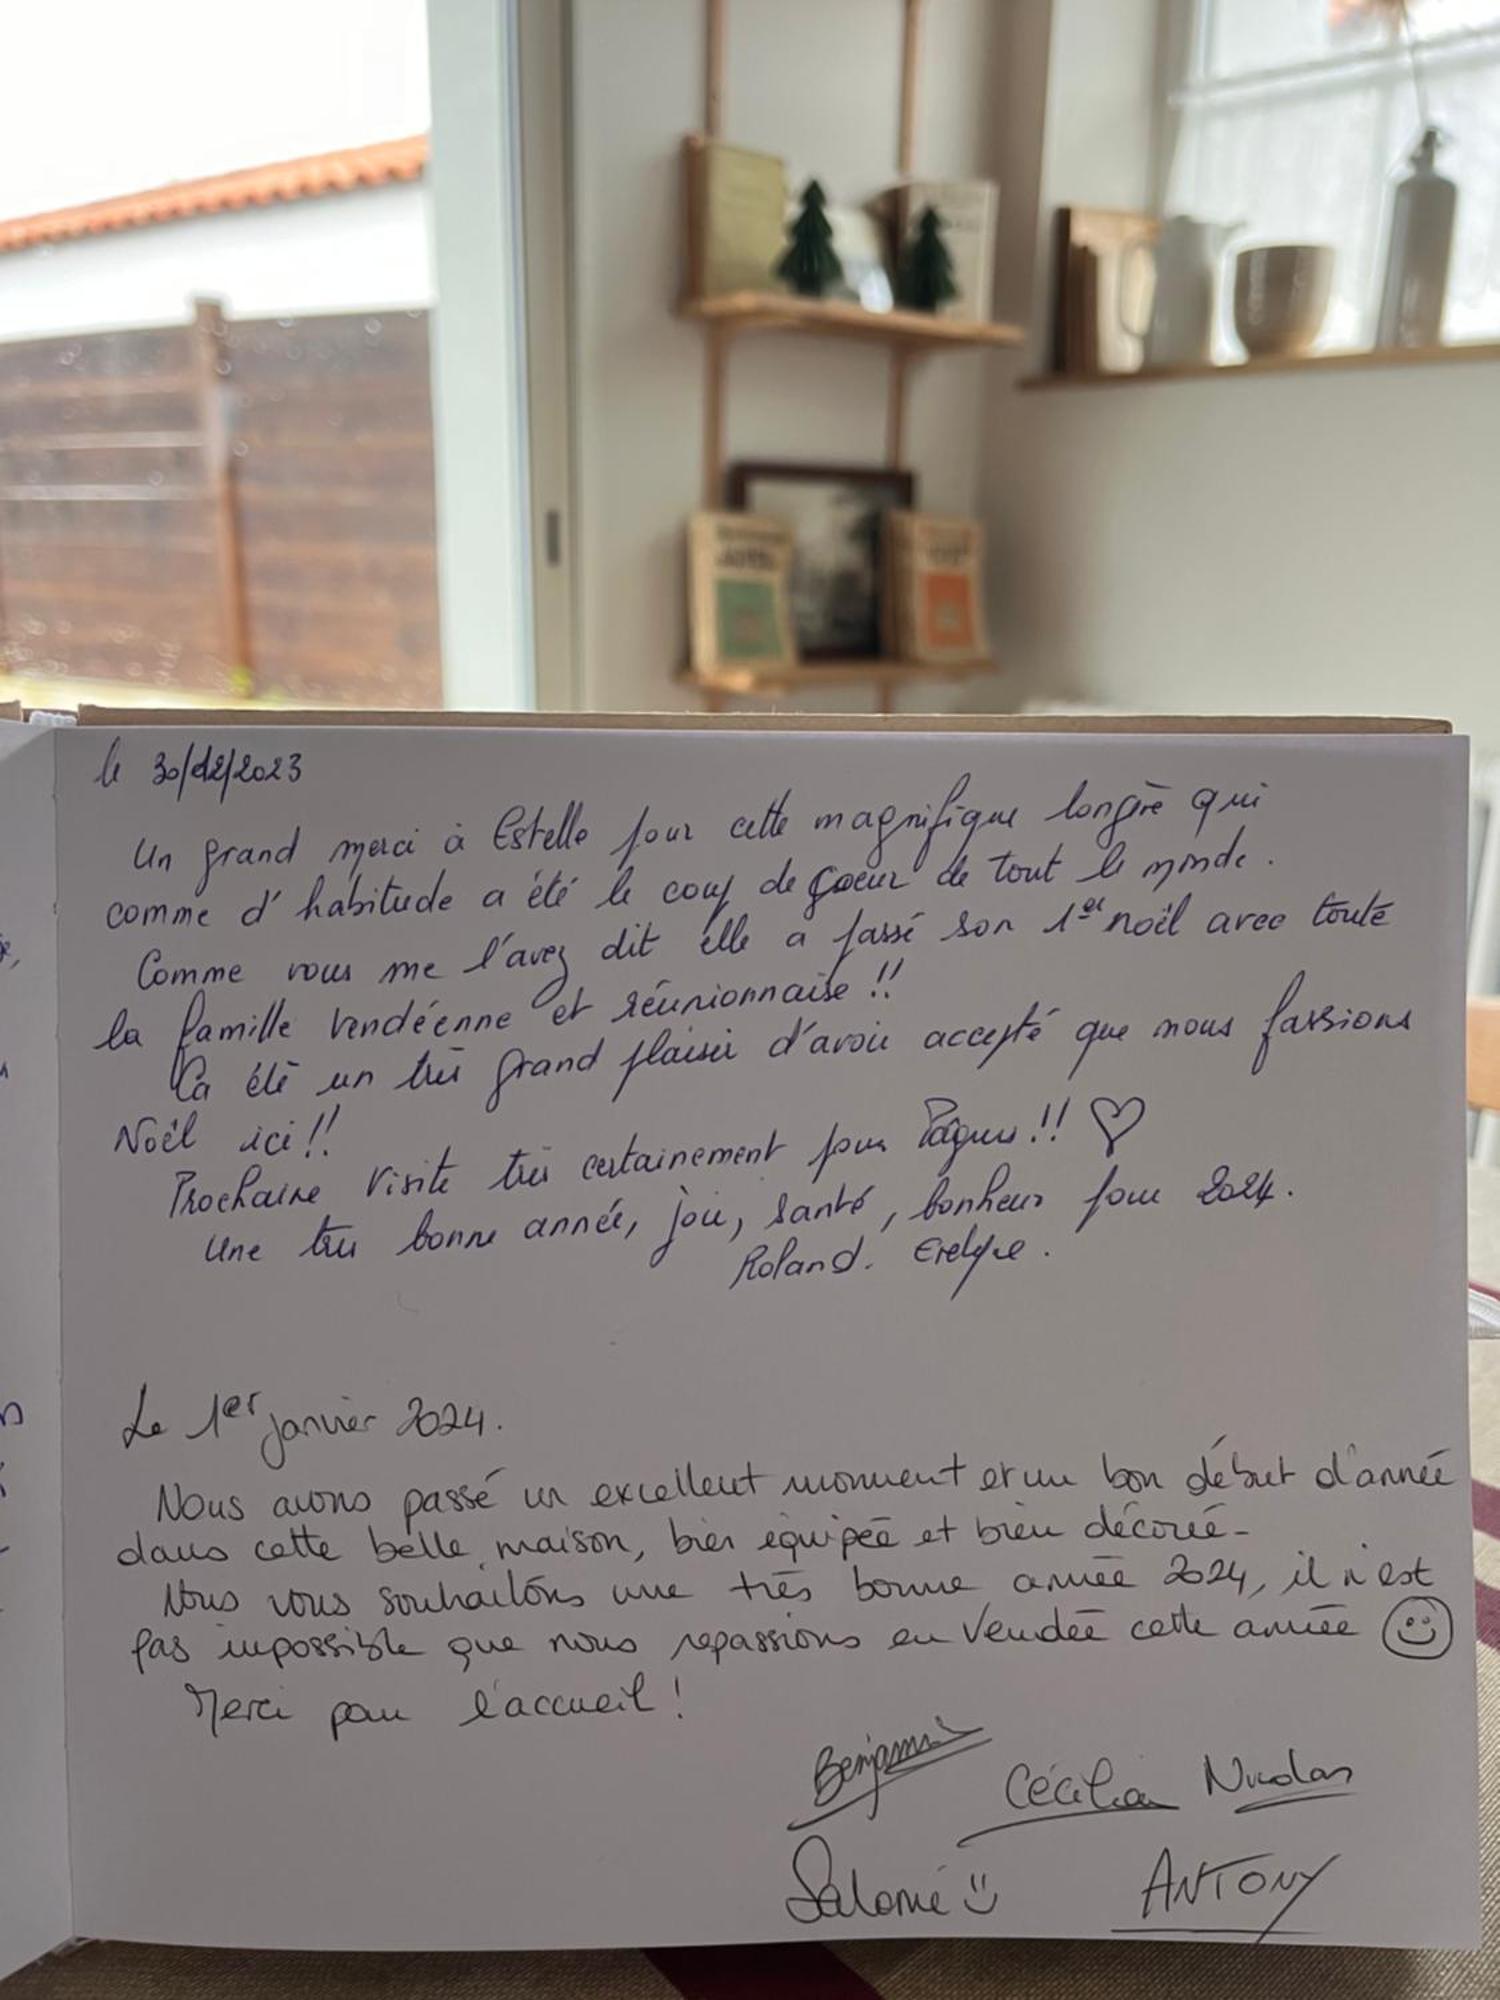 le 30/12/2023
Un grand merci à Estelle pour cette magnifique longère qui
comme d'habitude a été le coup de coeur de tout le monde.
Comme vous me l'avez dit elle a passé son 1er noël avec toute
la famille vendéenne et réunionnaise !!
Ca été un très grand plaisir d'avoir accepté que nous fassions
Noël ici !!
Prochaine visite très certainement pour Pâques !! ♡
Une très bonne année, joie, santé, bonheur pour 2024.
Roland. Evelyne.
Le 1er janvier 2024.
Nous avons passé un excellent moment et un bon début d'année
dans cette belle maison, bien équipée et bien décorée-
Nous vous souhaitons une très bonne année 2024, il n'est
pas impossible que nous repassions en Vendée cette année ☺
Merci pour l'accueil !
Benjamin
Cécilia Nicolas
Salomé ☺ ANTONY